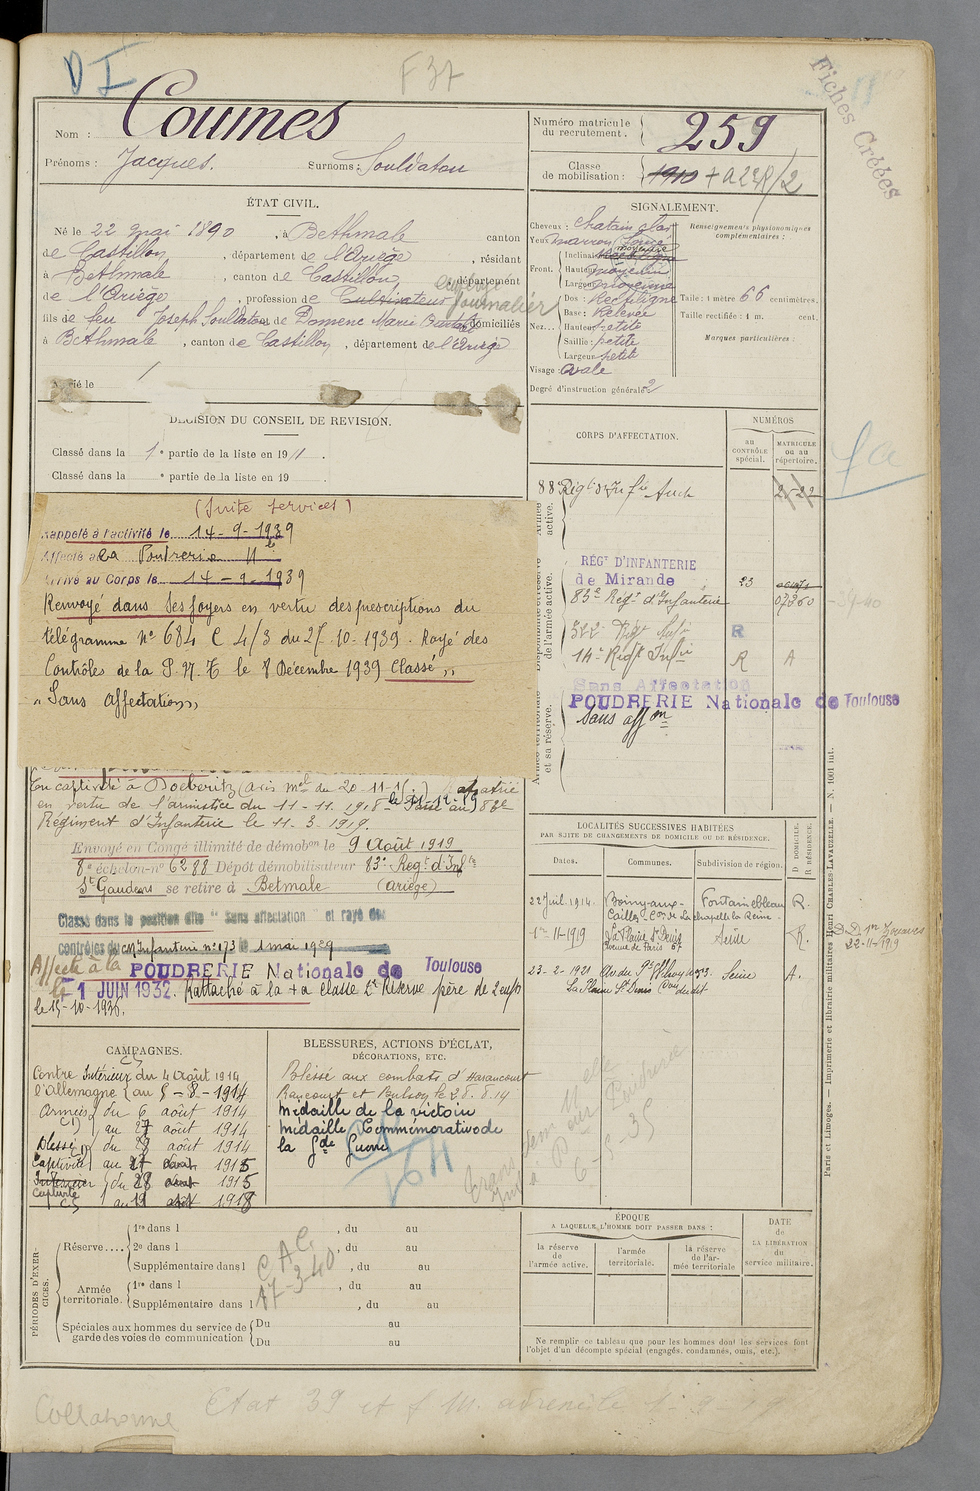 D I
F 37
Fiches Créées
Nom : Coumes
Prénoms : Jacques. Surnoms : Souldatou
Numéro matricule du recrutement. 259
Classe de mobilisation : 1910
ÉTAT CIVIL.
Né le 22 mai 1890, à Bethmale canton
de Castillon, département de l'Ariège, résidant
à Bethmale, canton de Castillon, département
de l'Ariège, profession de Cultivateur Journalier
fils de feu Joseph Souldatou et de Domenc Marie domiciliés
à Bethmale, canton de Castillon, département de l'Ariège
Marié le
SIGNALEMENT.
Cheveux : chatain clair
Yeux marron
Front. Inclinaison
Hauteur moyenne
Largeur moyenne
Nez... Dos : Rectiligne
Base : Relevée
Hauteur petite
Saillie : petite
Largeur petite
Visage : Ovale
Degré d'instruction générale 2
Renseignements physionomiques complémentaires :
Taille : 1 mètre 66 centimètres.
Taille rectifiée : 1 m. cent.
Marques particulières :
DÉCISION DU CONSEIL DE REVISION.
Classé dans la 1e partie de la liste en 1911.
Classé dans la e partie de la liste en 19 .
(Suite services)
Rappelé à l'activité le 14-9-1939
Affecté à la Poudrerie Nle
Arrivé au Corps le 14-9-1939
Renvoyé dans ses foyers en vertu des prescriptions du
télégramme N° 684 C 4/3 du 27-10-1939. Rayé des
Contrôles de la P.N.T. le 8 Décembre 1939 Classé "
" Sans affectation "
En captivité à Doeberitz (avis mel du 20-11-1 ) Rapatrié
en vertu de l'armistice du 11-11-1918 Passé au 83e
Régiment d'Infanterie le 11-3-1919.
Envoyé en Congé illimité de démobon le 9 Août 1919
8e échelon n° 6288 Dépôt démobilisateur 83e Regt d'Infie
St Gaudens se retire à Betmale (ariège)
Classé dans la position dite "sans affectation" et rayé des
contrôles de l'Infanterie n° 173 le 1 mai 1929
Affecté à la POUDRERIE Nationale de Toulouse
le 1 JUIN 1932. Rattaché à la classe 2e Réserve père de 2 enfts
le 15-10-1936.
CORPS D'AFFECTATION.
NUMÉROS
au CONTRÔLE spécial.
MATRICULE ou au répertoire.
Armée active.
88 Régt d'Infie Auch
Disponibilité et réserve de l'armée active.
RÉGT D'INFANTERIE
de Mirande 23
83e Régt d'Infanterie 07360
322e Régt Infie R
14e Régt Infie R A
Sans Affectation
POUDRERIE Nationale de Toulouse
Armée territoriale et sa réserve.
Sans affon
LOCALITÉS SUCCESSIVES HABITÉES
PAR SUITE DE CHANGEMENTS DE DOMICILE OU DE RÉSIDENCE.
Dates. Communes. Subdivision de région. D. DOMICILE. R. RÉSIDENCE.
22 Juil. 1914. Fontainebleau R.
la chapelle la Reine
1er-11-1919 La Plaine St Denis Seine R.
Avenue de Paris 67
23-2-1921 Seine A.
La Plaine St Denis
22-11-1919
CAMPAGNES.
Contre l'Allemagne
Intérieur du 4 Août 1914
au 5-8-1914
Armées du 6 août 1914
au 27 août 1914
Blessé du 28 août 1914
Captivité au 27 1915
Intérieur du 28 1915
Captivité au 19 1918
BLESSURES, ACTIONS D'ÉCLAT,
DÉCORATIONS, ETC.
Blessé aux combats d'Haraucourt
Raucourt et Bulson le 28.8.14
Médaille de la victoire
Médaille Commémorative de
la Gde Guerre
6-5-35
PÉRIODES D'EXERCICES.
Réserve.... 1re dans l , du au
2e dans l , du au
Supplémentaire dans l , du au
Armée territoriale. 1re dans l , du au
Supplémentaire dans l , du au
Spéciales aux hommes du service de garde des voies de communication Du au
Du au
C.A.C.
17-3-40
ÉPOQUE
A LAQUELLE L'HOMME DOIT PASSER DANS :
la réserve de l'armée active.
l'armée territoriale.
la réserve de l'armée territoriale
DATE de LA LIBÉRATION du service militaire.
Ne remplir ce tableau que pour les hommes dont les services font
l'objet d'un décompte spécial (engagés, condamnés, omis, etc.).
Paris et Limoges. — Imprimerie et librairie militaires Henri CHARLES-LAVAUZELLE. — N. 1001 int.